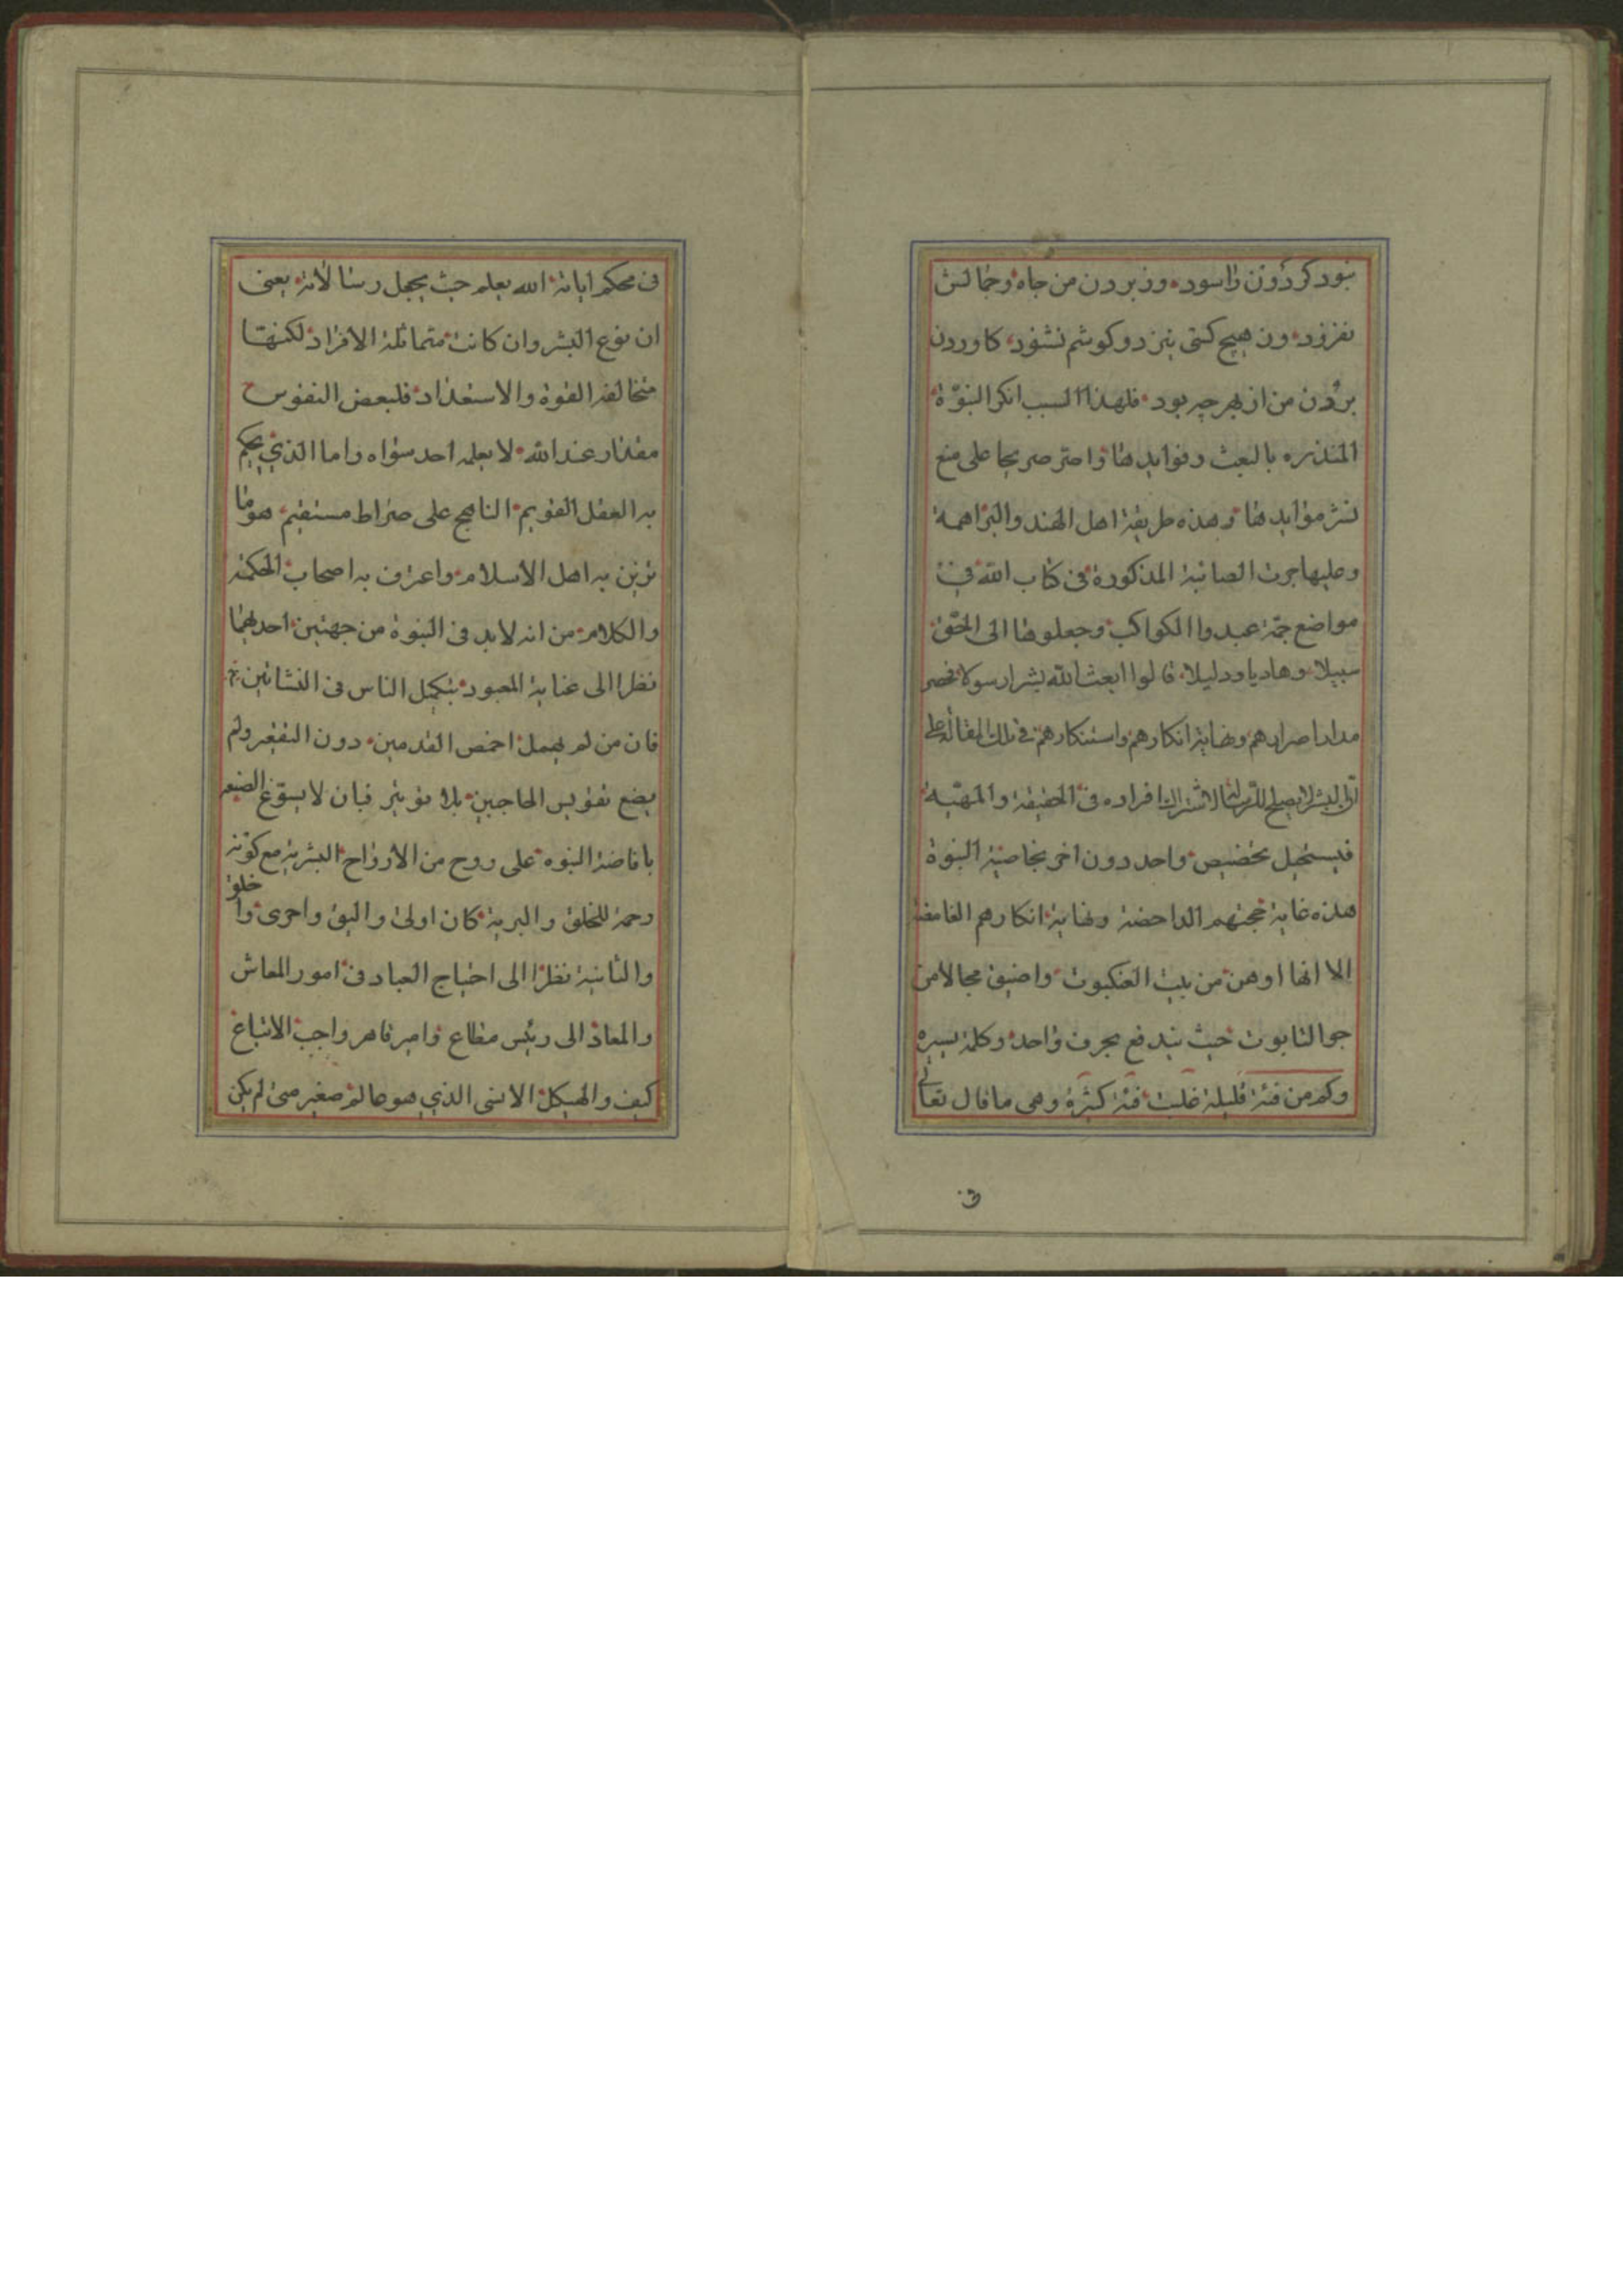 نبود كردون را سود وز بردن من جاه و جمالش
نفزود وز هيچ كسى نيز دو كوشم نشنود كاوردن
بردن من از بهر چه بود فلهذا السبب انكر النبوّة
المنذره بالبعث وفوايدها واصرّ صريحا على منع
نشر موايدها وهذه طريقة اهل الهند والبراهمة
وعليها جرت الصابئية المذكورة فى كتاب الله فى
مواضع جمّة عبدوا الكواكب وجعلوها الى الحقّ
سبيلا وهاديا ودليلا قالوا ابعث الله بشرا رسولا فحصر
مدار اصرارهم ونهاية انكارهم واستنكارهم فى تلك المقالة على
انّ البشر لا يصلح للرسالة لاشتراك افراده فى الحقيقة والمهيّة
فيستحيل تخصيص واحد دون اخر بخاصية النبوة
هذه غاية حجتهم الداحضة ونهاية انكارهم الغامضة
الا انها اوهن من بيت العنكبوت واضيق مجالا من
جو التابوت حيث يندفع بحرف واحد وكلمة يسيره
وكم من فئة قليلة غلبت فئة كثيرة وهى ما قال تعالى
فى
فى محكم اياته الله يعلم حيث يجعل رسالاته يعنى
ان نوع البشر وان كانت متماثلة الافراد لكنها
متخالفة القوة والاستعداد فلبعض النفوس
مقدار عند الله لا يعلمه احد سواه واما الذي يحكم
به العقل القويم الناهج على صراط مستقيم هو ما
تزين به اهل الاسلام واعترف به اصحاب الحكمة
والكلام من انه لابد فى النبوة من جهتين احديهما
نظرا الى عناية المعبود بتكميل الناس فى النشاتين
فان من لم يهمل اخمص القدمين دون التقعير ولم
يضع تقويس الحاجبين بلا توتير فبان لا يسوّغ الضنة
بافاضة النبوه على روح من الارواح البشرية مع كونه
رحمة للخلق والبرية كان اولى واليق واحرى واخلق
والثانية نظرا الى احتياج العباد فى امور المعاش
والمعاد الى رئيس مطاع وامير قاهر واجب الاتباع
كيف والهيكل الانسى الذي هو عالم صغير متى لم يكن